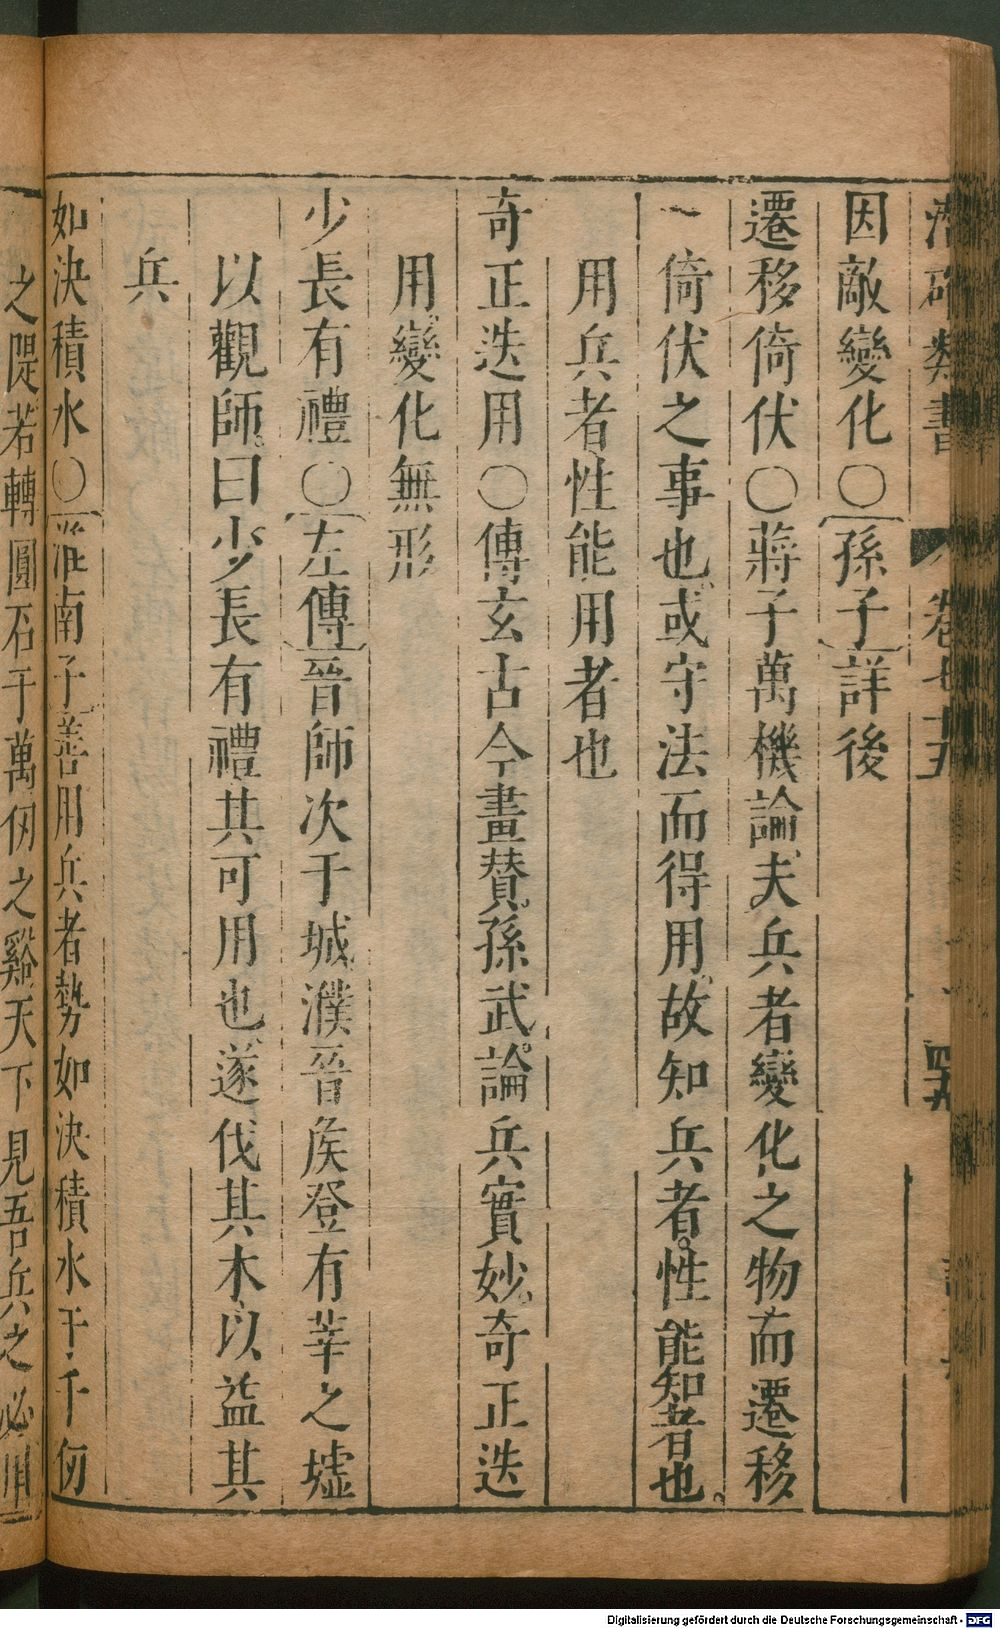 潛確類書 卷七十五 四九
因敵變化○孫子詳後
遷移倚伏○蔣子萬機論夫兵者變化之物而遷移
一倚伏之事也或守法而得用故知兵者性能知者也
用兵者性能用者也
奇正迭用○傳玄古今畫贊孫武論兵實妙奇正迭
用變化無形
少長有禮○左傳晉師次于城濮晉矦登有莘之墟
以觀師曰少長有禮其可用也遂伐其木以益其
兵
如決積水○淮南子善用兵者勢如決積水于千仞
之隄若轉圓石于萬仞之谿天下見吾兵之必用
Digitalisierung gefördert durch die Deutsche Forschungsgemeinschaft - DFG